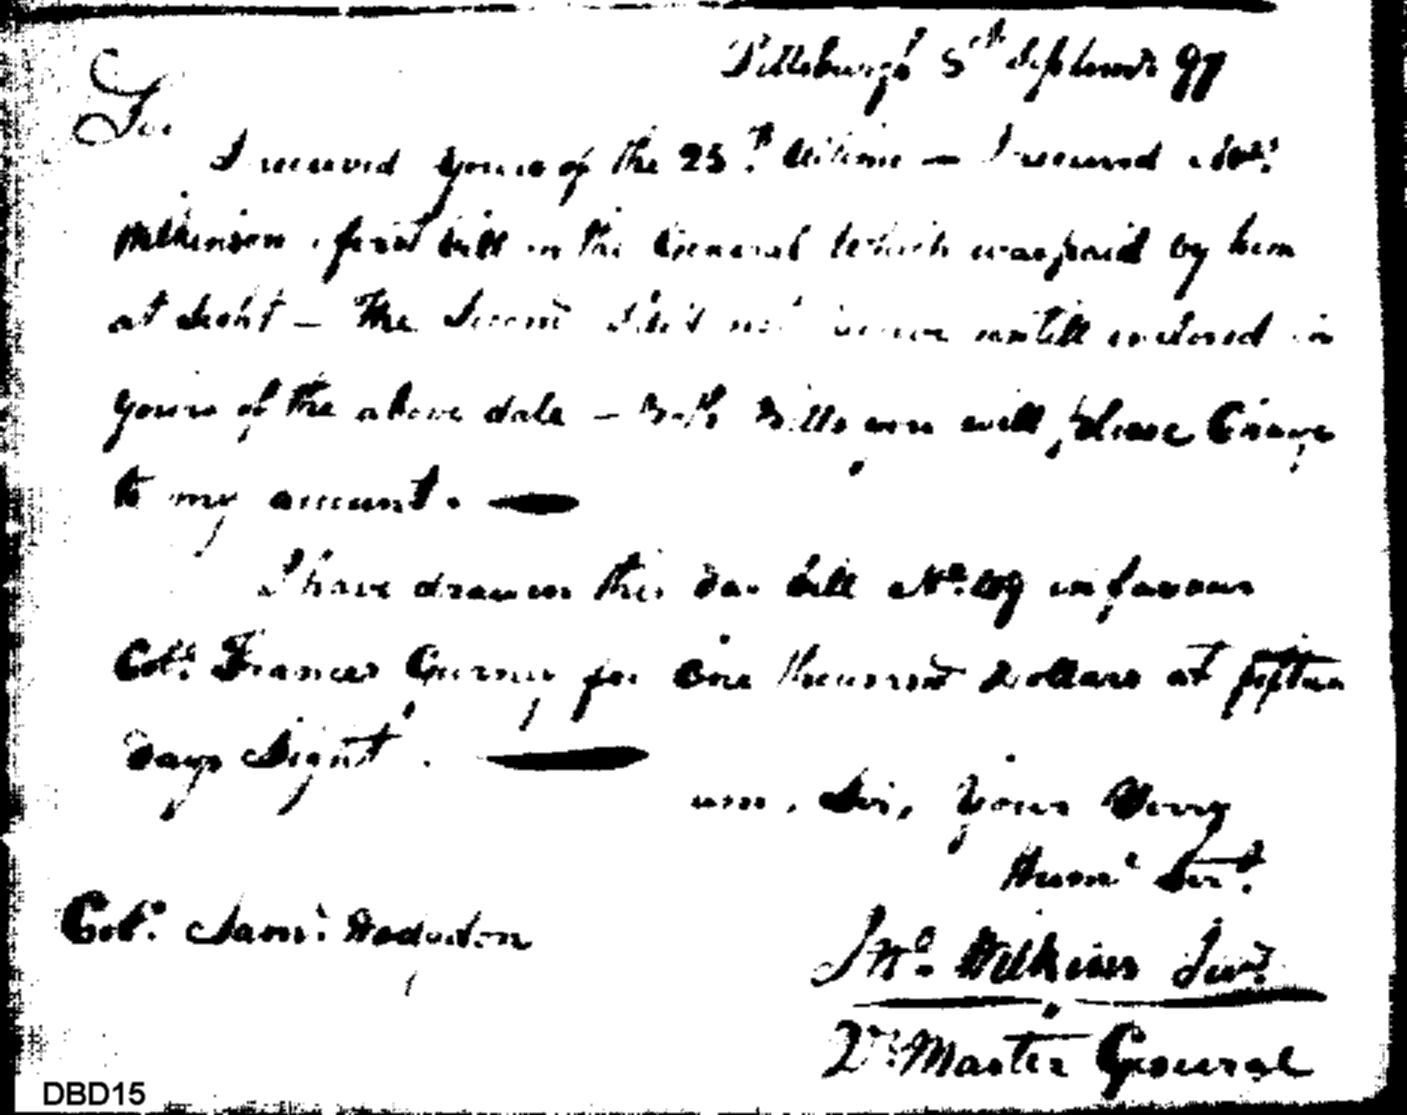 Pittsburgh 5th September 97
Sir
I received yours of the 25th Ultimo — I received Mr.
Wilkinson first bill on the General which was paid by him
at Sight — The Second I did not receive untill enclosed in
yours of the above date — Both Bills you will please Charge
to my account. —
I have drawn this day bill No. 109 in favour
Colo. Frances Gurney for One thousand Dollars at fifteen
days Sight. —
am, Sir, Your Very
Humle Servt.
Colo. Saml. Hodgdon
Jno. Wilkins Junr.
Qr. Master General
DBD15